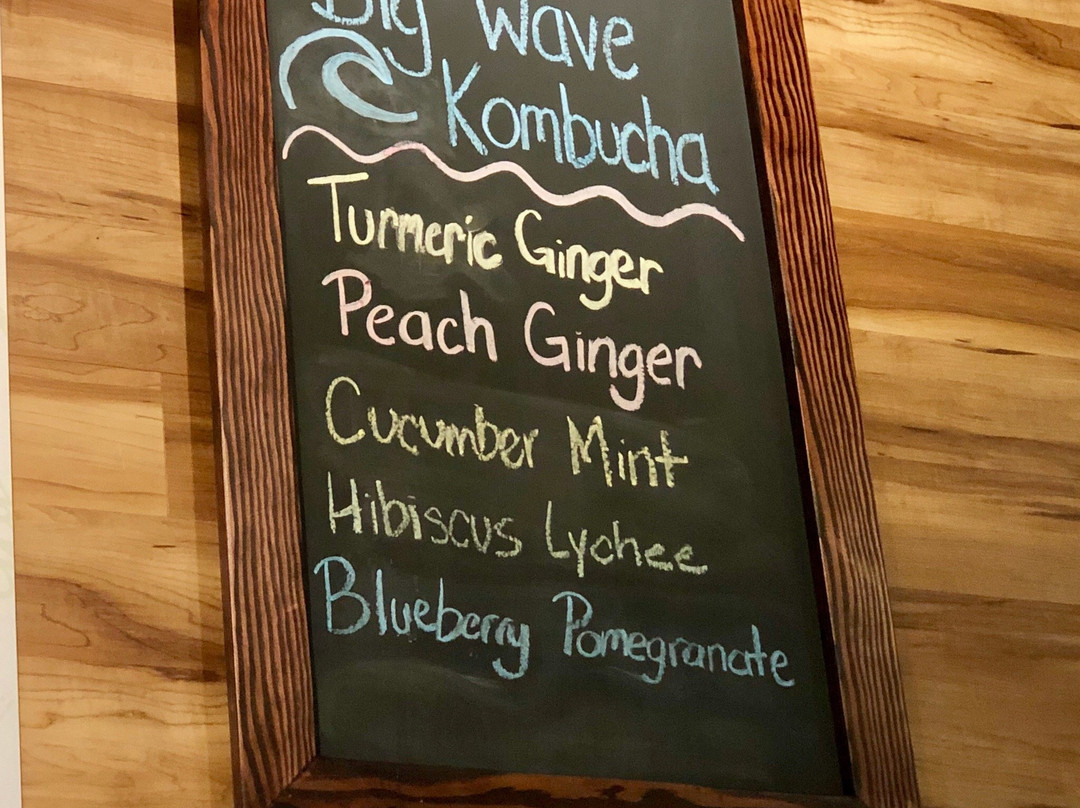 Big Wave
Kombucha
Turmeric Ginger
Peach Ginger
Cucumber Mint
Hibiscus Lychee
Blueberry Pomegranate